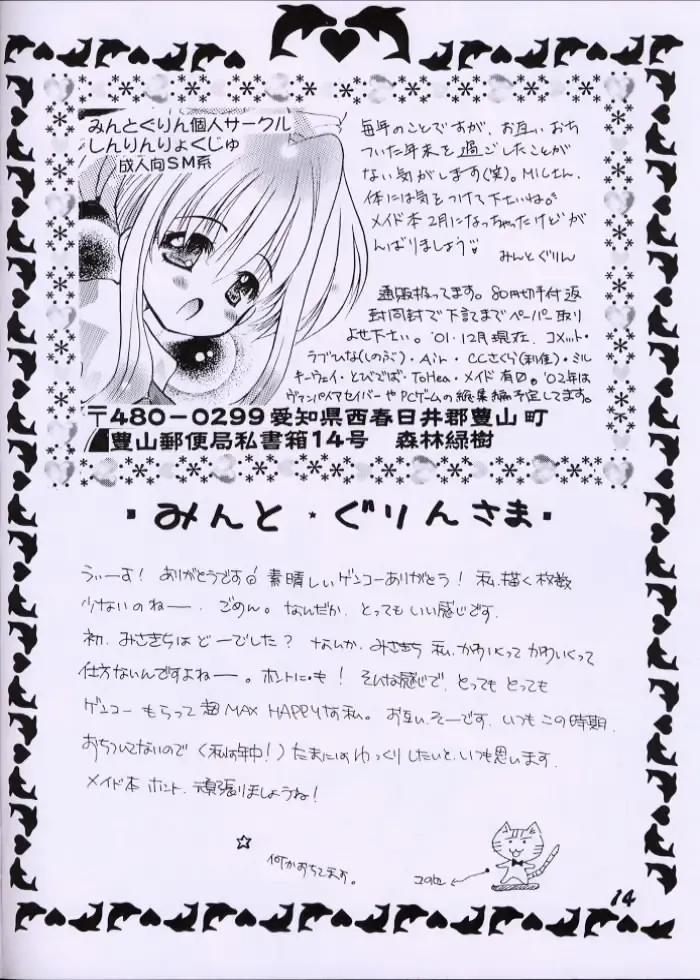 みんとぐりん個人サークル
しんりんりょくじゅ
成人向SM系
毎年のことですが、お互いおち
ついた年末を過ごしたことが
ない気がします(笑)。MICさん、
体には気をつけて下さいね。
メイド本2月になっちゃったけどが
んばりましょう
みんとぐりん
通販扱ってます。80円切手付返
封同封で下記までペーパー取り
よせ下さい。'01・12月現在、コメット・
ラブひな(しのぶ)・Air・CCさくら(利佳)・ミル
キーウェイ・とびでばで・ToHea・メイド有り。'02年は
ヴァンパイアセイバーやPCゲームの総集編予定してます。
〒480-0299愛知県西春日井郡豊山町
豊山郵便局私書箱14号 森林緑樹
みんと・ぐりんさま
うぃーす! ありがとうです! 素晴しいゲンコーありがとう! 私、描く枚数
少ないのねー、ごめん。なんだか、とってもいい感じです。
初、みさきちはどーでした? なんか、みさきち 私、かわいくって かわいくって
仕方ないんですよねー。ホントに・も! そんな感じで、とっても とっても
ゲンコー もらって 超MAX HAPPYな私。お互い、そーです、いつもこの時期、
おちついてないので(私は年中!)たまにはゆっくりしたいと、いつも思います。
メイド本 ホント、頑張りましょうね!
何かおちてます。
14